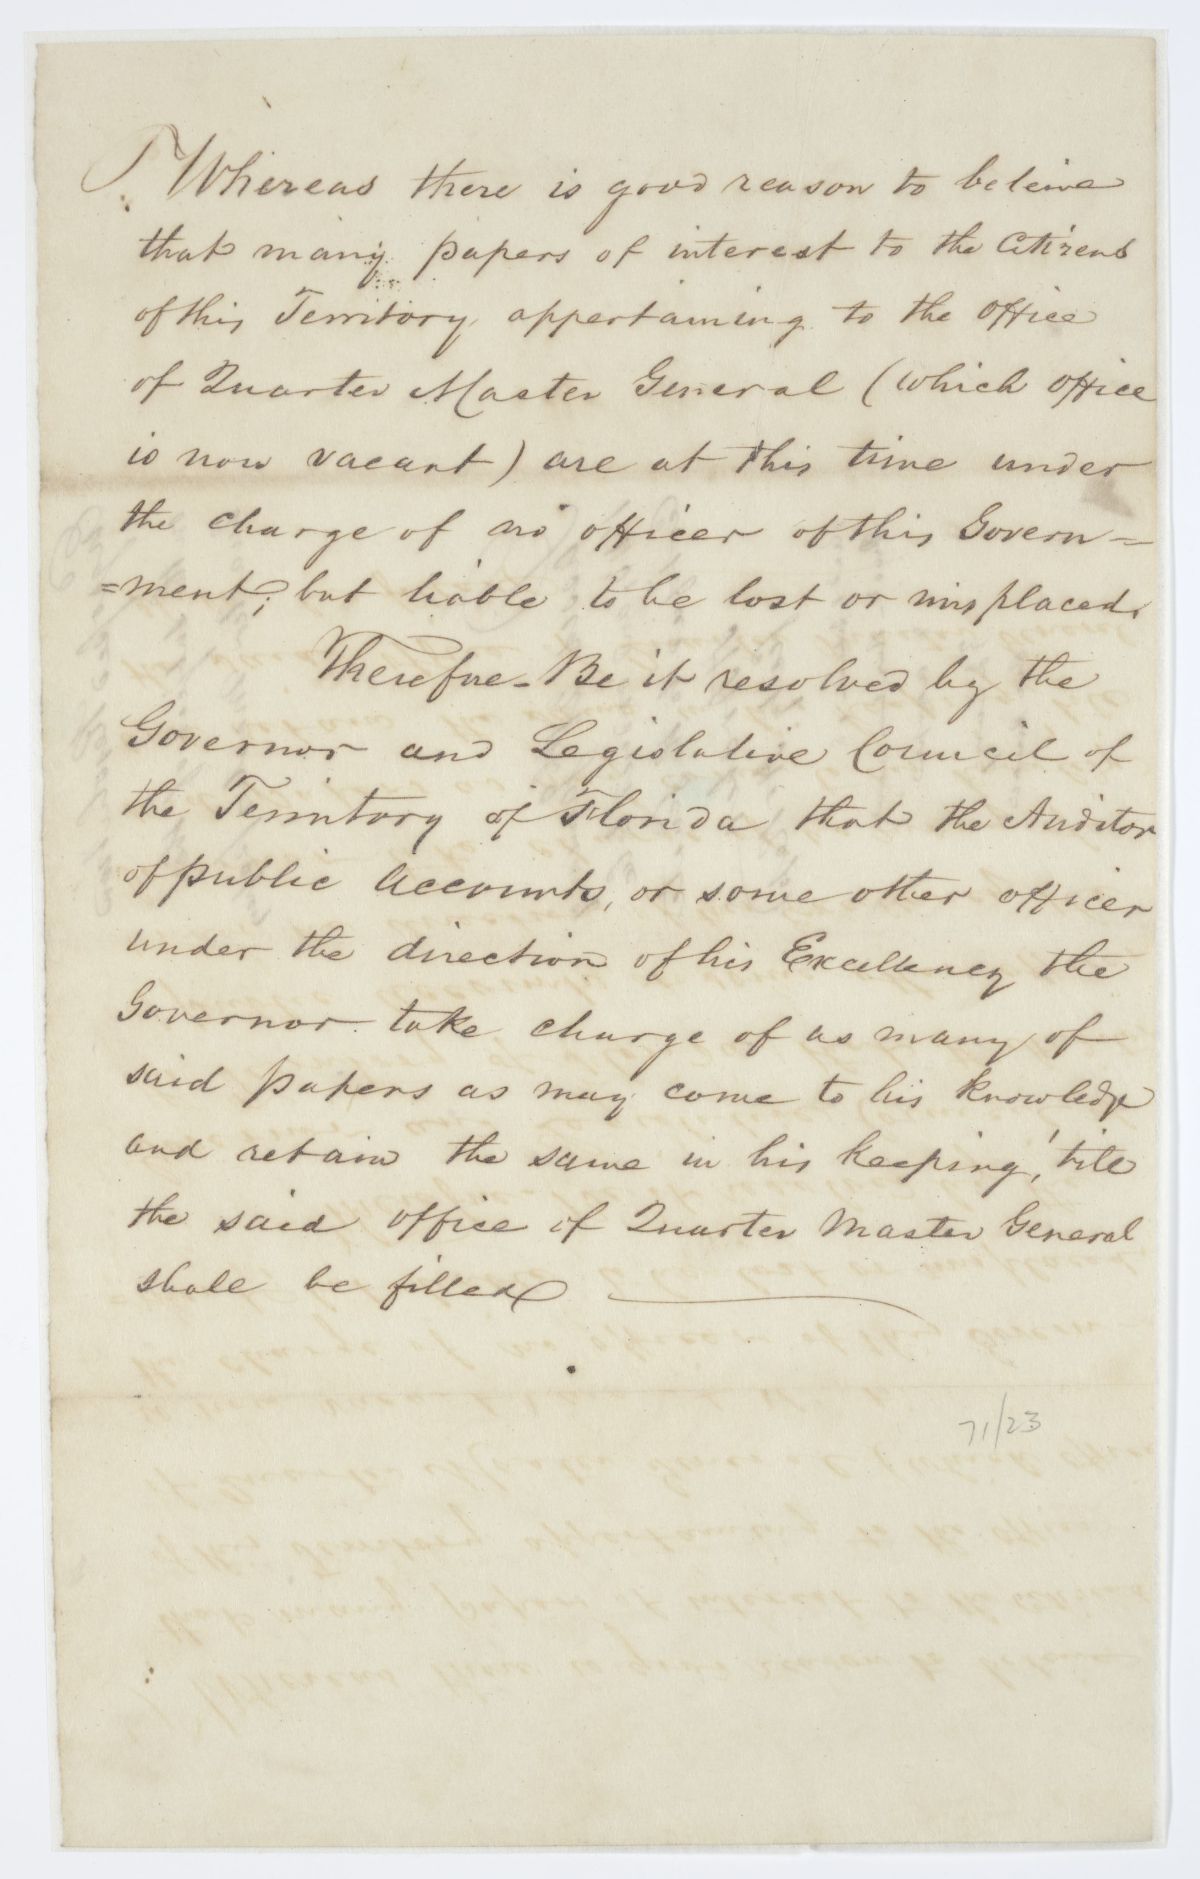 Whereas there is good reason to beleive
that many papers of interest to the Citizens
of this Territory, appertaining to the office
of Quarter Master General (which office
is now vacant) are at this time under
the charge of no officer of this Govern=
=ment, but liable to be lost or misplaced.
Therefore - Be it resolved by the
Governor and Legislative Council of
the Territory of Florida that the Auditor
of public Accounts, or some other officer
under the direction of his Excellency the
Governor take charge of as many of
said papers as may come to his knowledge
and retain the same in his keeping, 'till
the said office of Quarter Master General
shall be filled
71/23